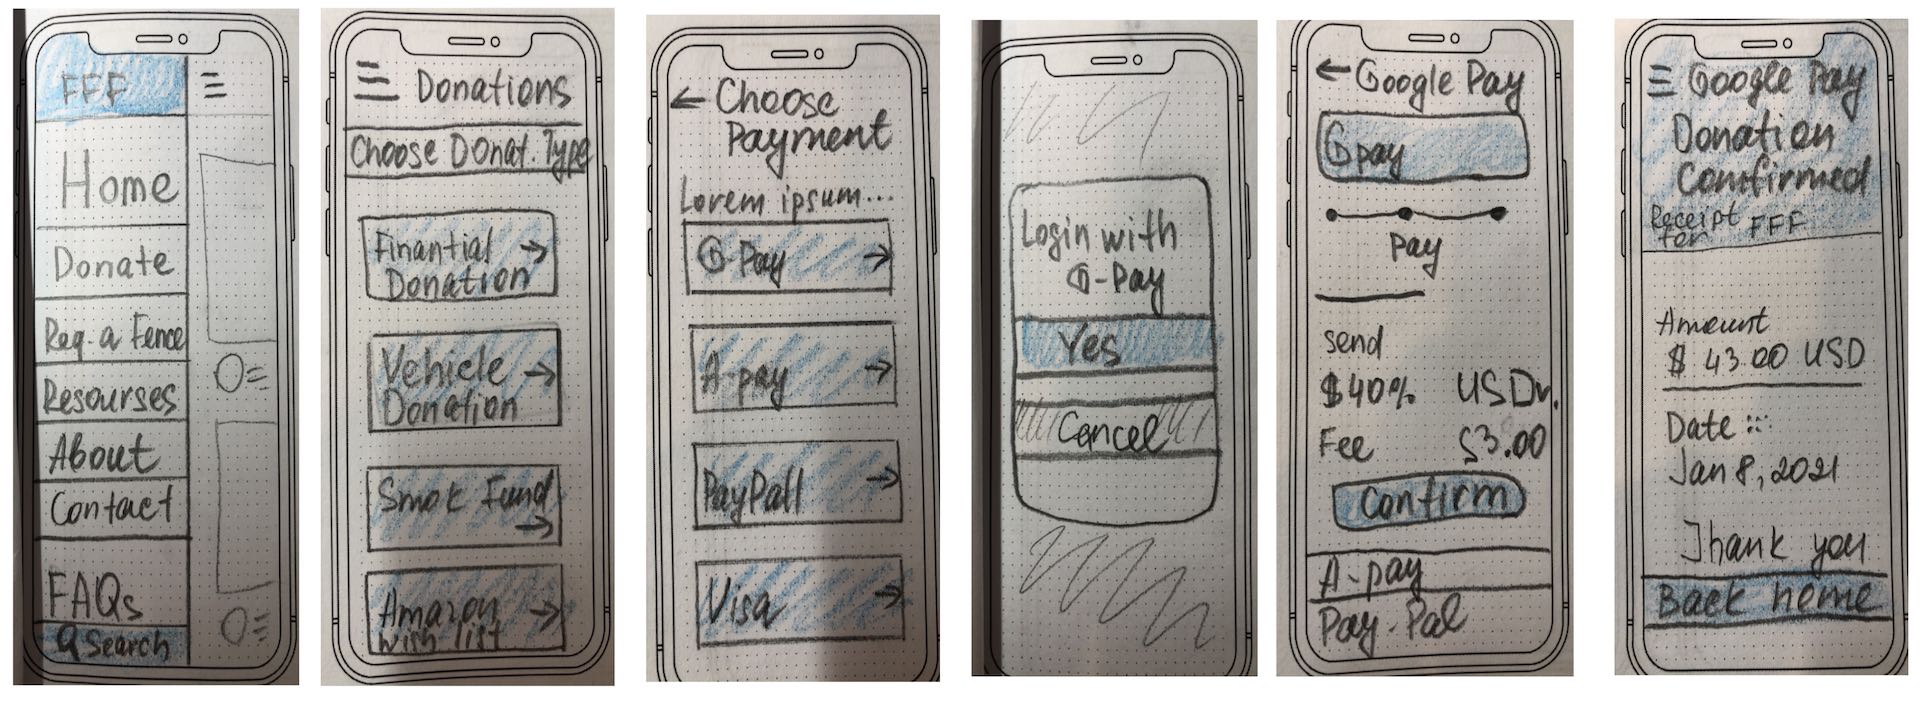 FFF
Home
Donate
Req. a Fence
Resourses
About
Contact
FAQs
Search
Donations
Choose Donat. Type
Finantial
Donation
Vehicle
Donation
Smok Fund
Amazon
wish list
Choose
Payment
Lorem ipsum...
G-Pay
A-pay
PayPall
Visa
Login with
G-Pay
Yes
Cancel
Google Pay
Gpay
Pay
send
$40%
Fee $3.00
Confirm
A-pay
Pay-Pal
Google Pay
Donation
Confirmed
Receipt
for FFF
Amount
$ 43.00 USD
Date :::
Jan 8, 2021
Thank you
Back home